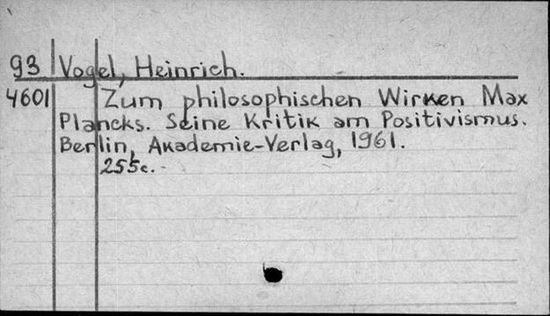 93 Vogel, Heinrich.
4601 Zum philosophischen Wirken Max
Plancks. Seine Kritik am Positivismus.
Berlin, Akademie-Verlag, 1961.
255c.